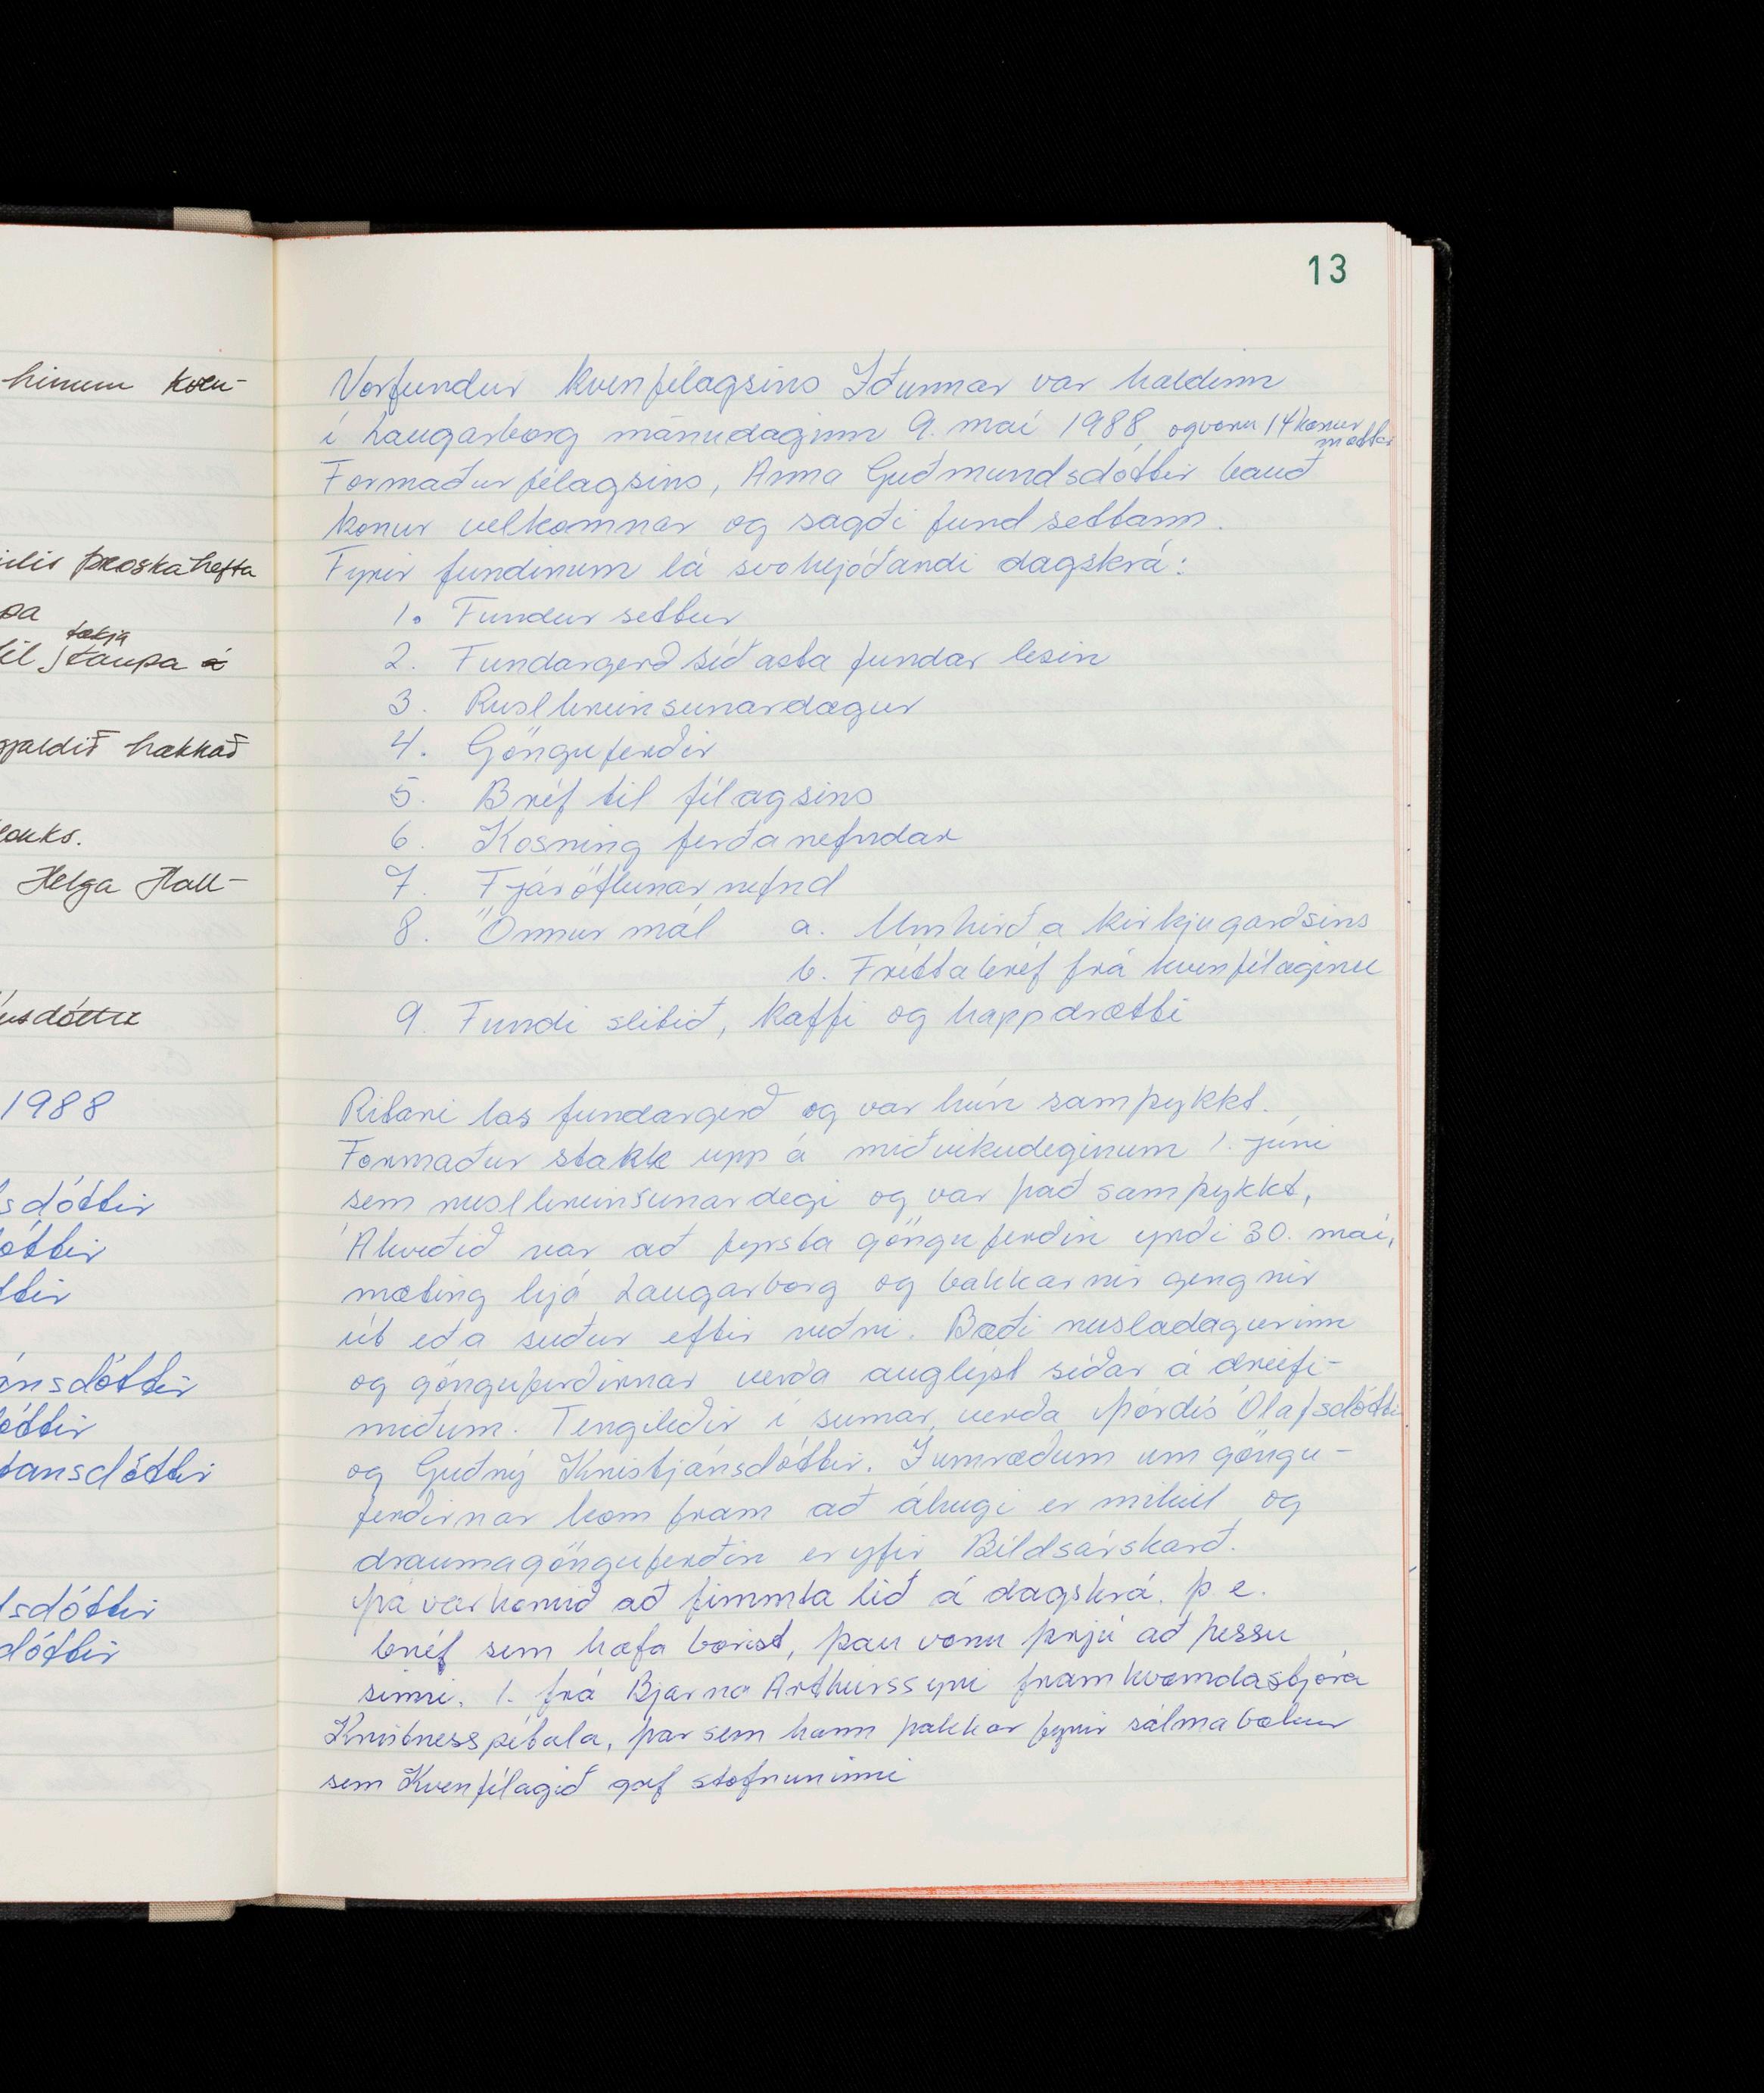 hinum kven-
þroskahefta
tækja
til kaupa á
gjaldið hækkað
Helga Hall-
1988
sdóttir
óttir
ttir
ánsdóttir
óttir
tansdóttir
lsdóttir
dóttir
13
Vorfundur kvenfélagsins Iðunnar var haldinn
í Laugarborg mánudaginn 9. maí 1988, og voru 14 konur
mættar
Formaður félagsins, Anna Guðmundsdóttir bauð
konur velkomnar og sagði fund settann.
Fyrir fundinum lá svohljóðandi dagskrá:
1. Fundur settur
2. Fundargerð síðasta fundar lesin
3. Ruslhreinsunardagur
4. Gönguferðir
5. Bréf til félagsins
6. Kosning ferðanefndar
7. Fjáröflunarnefnd
8. Önnur mál a. Umhirða kirkjugarðsins
b. Fréttabréf frá kvenfélaginu
9. Fundi slitið, kaffi og happdrætti
Ritari las fundargerð og var hún samþykkt.
Formaður stakk upp á miðvikudeginum 1. júní
sem ruslhreinsunardegi og var það samþykkt,
Ákveðið var að fyrsta gönguferðin yrði 30. maí,
mæting hjá Laugarborg og bakkarnir gengnir
út eða suður eftir veðri. Bæði rusladagurinn
og gönguferðirnar verða auglýst síðar á dreifi-
miðum. Tengiliðir í sumar, verða Þórdís Ólafsdóttir
og Guðný Kristjánsdóttir. Í umræðum um göngu-
ferðirnar kom fram að áhugi er mikill og
draumagönguferðin er yfir Bíldsárskarð.
Þá var komið að fimmta lið á dagskrá. þ.e.
bréf sem hafa borist, þau voru þrjú að þessu
sinni. 1. frá Bjarna Arthurssyni framkvæmdastjóra
Kristnesspítala, þar sem hann þakkar fyrir sálmabækur
sem Kvenfélagið gaf stofnuninni